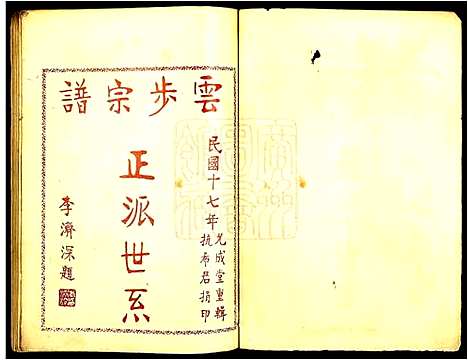 雲步宗譜
民國十七年
光成堂重輯
抗布君捐印
正派世系
李濟深題